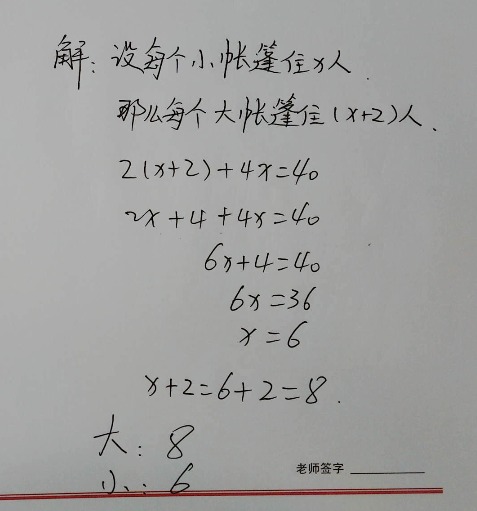 解：设每个小帐篷住x人.
那么每个大帐篷住(x+2)人.
2(x+2)+4x=40
2x+4+4x=40
6x+4=40
6x=36
x=6
x+2=6+2=8.
大：8
小：6
老师签字